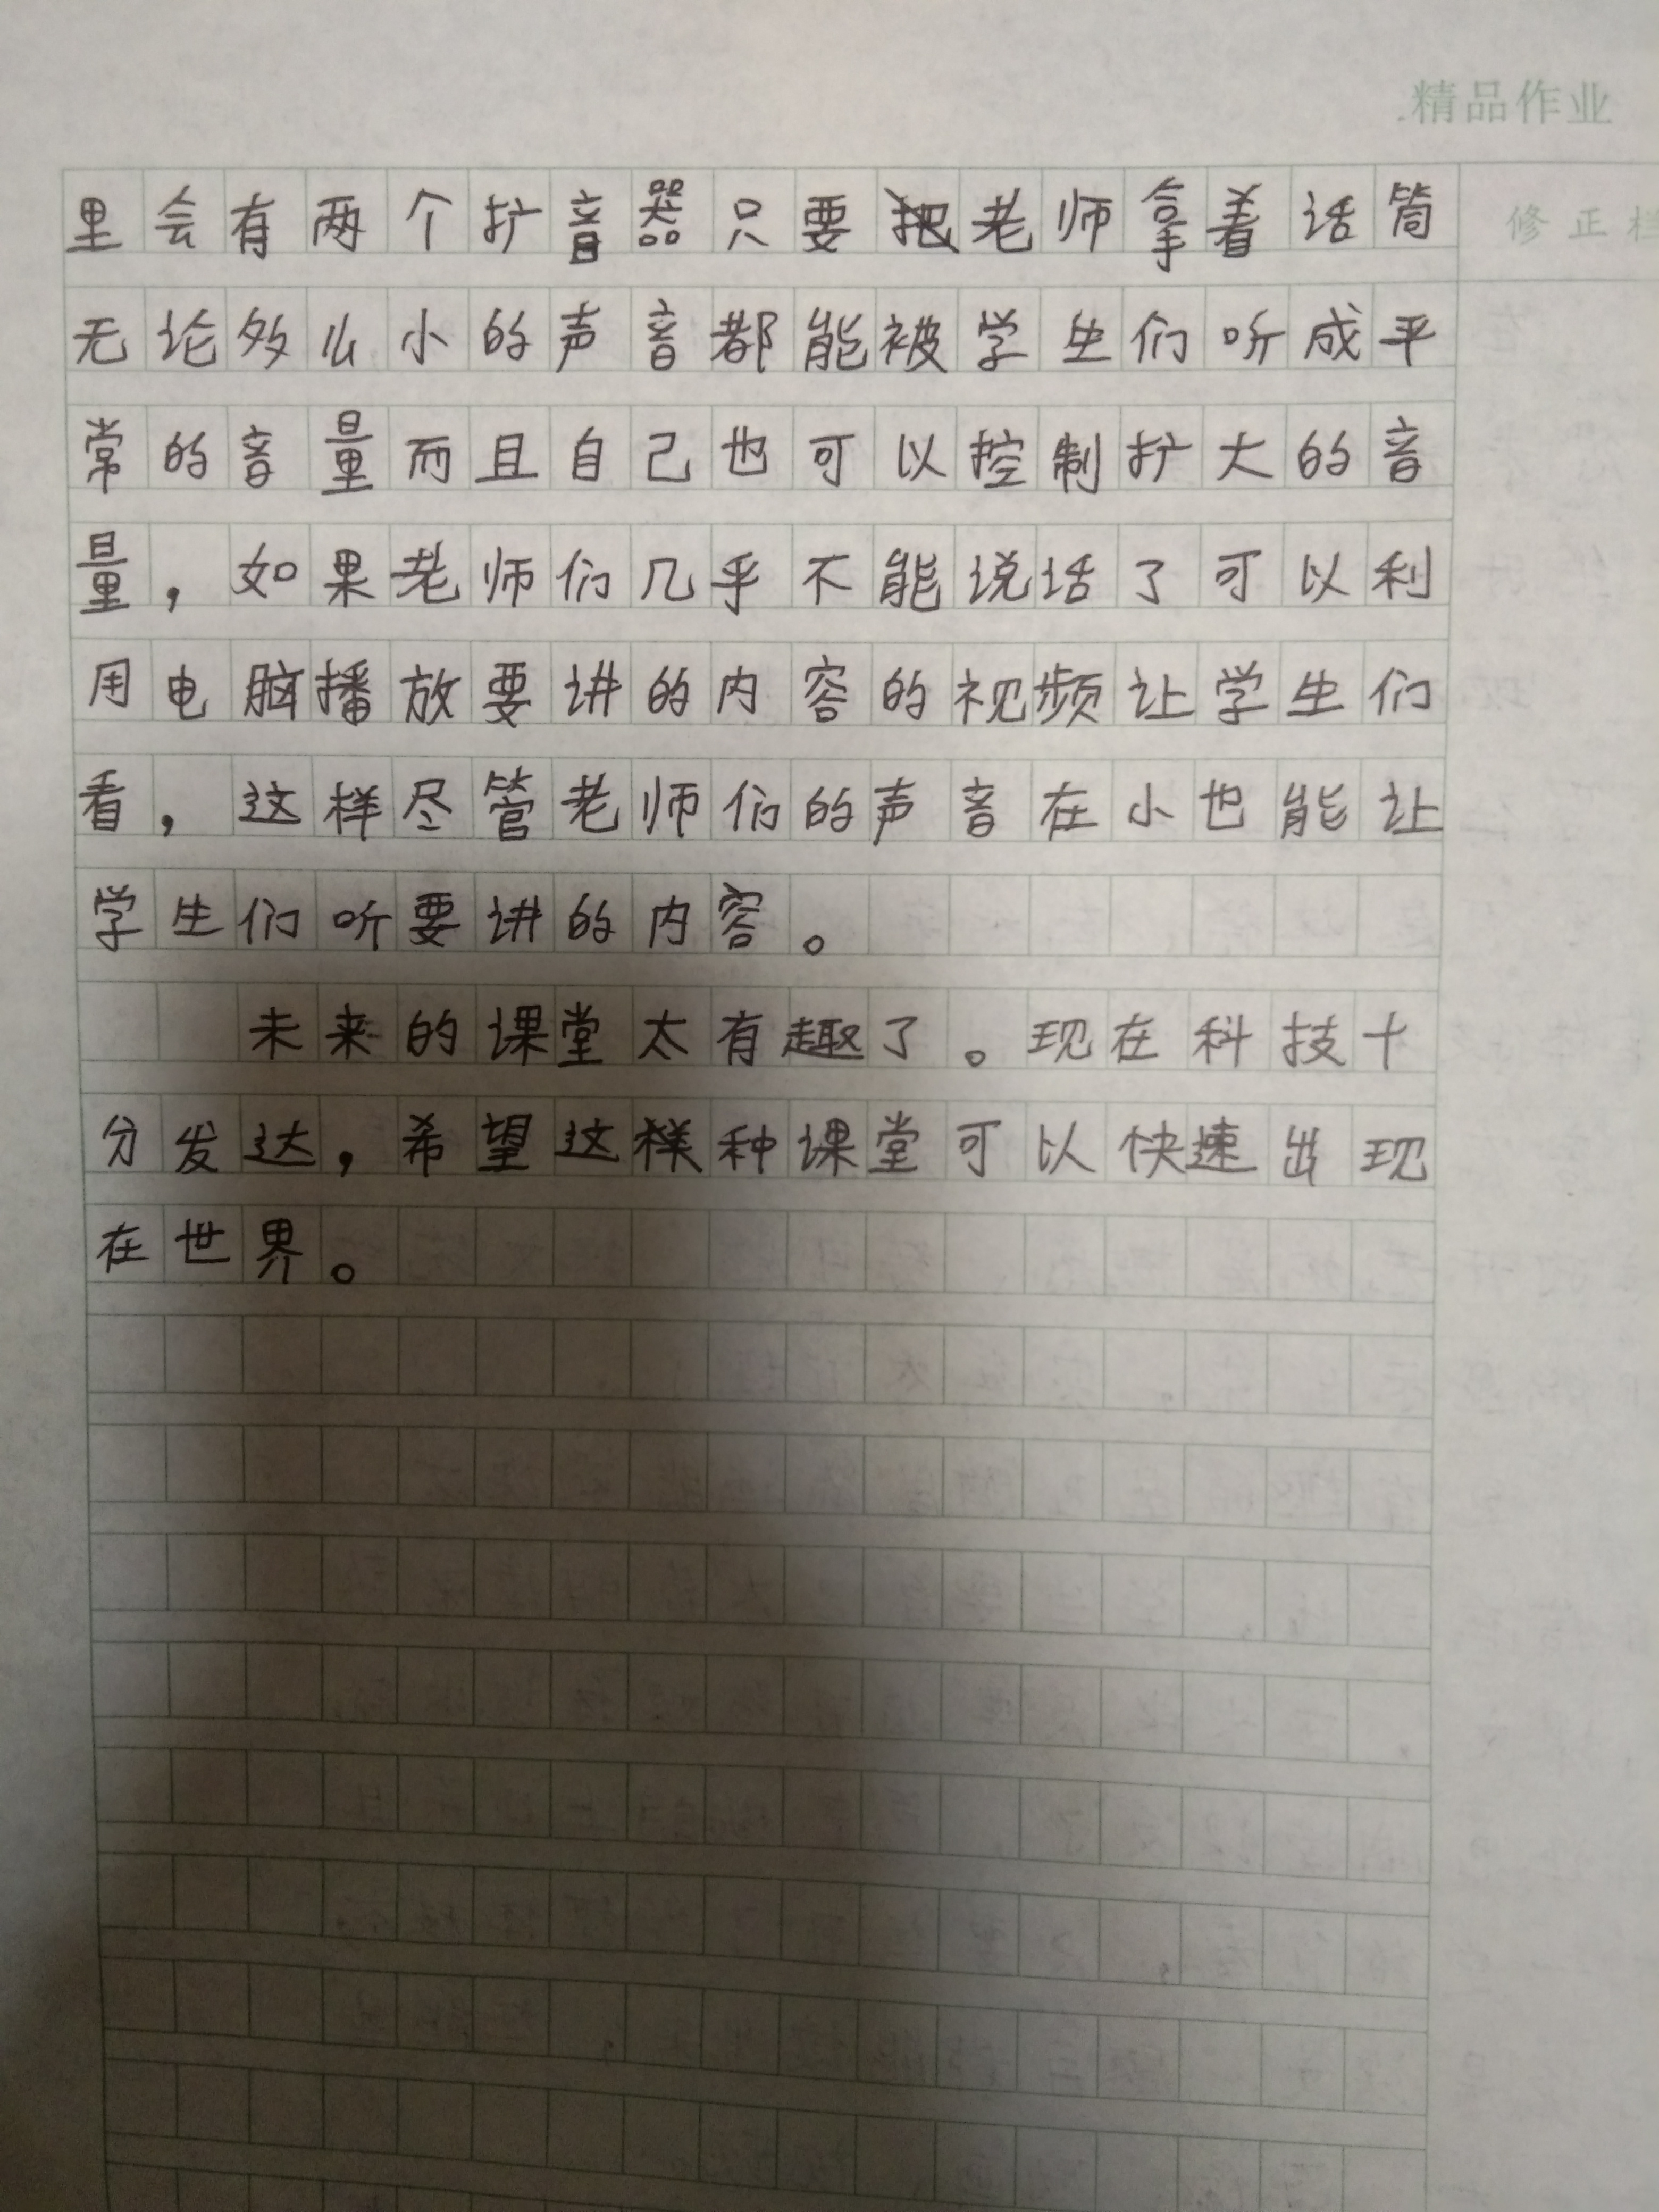 精品作业
修正栏
里会有两个扩音器只要老师拿着话筒
无论多么小的声音都能被学生们听成平
常的音量而且自己也可以控制扩大的音
量，如果老师们几乎不能说话了可以利
用电脑播放要讲的内容的视频让学生们
看，这样尽管老师们的声音在小也能让
学生们听要讲的内容。
未来的课堂太有趣了。现在科技十
分发达，希望这种课堂可以快速出现
在世界。